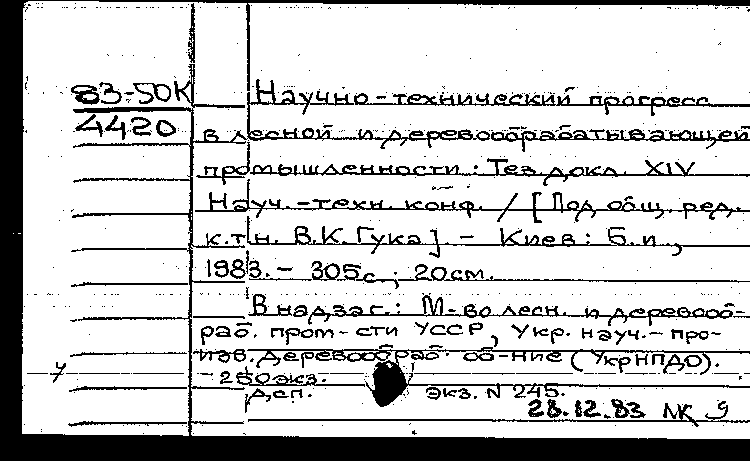 83-50К
4420
Научно-технический прогресс
в лесной и деревообрабатывающей
промышленности: Тез. докл. XIV
Науч.-техн. конф. / [Под общ. ред.
к.т.н. В.К. Гука] - Киев: Б.и.,
1983. - 305с.; 20см.
В надзаг.: М-во лесн. и деревооб-
раб. пром-сти УССР, Укр. науч.-про-
изв. деревообраб. об-ние (УкрНПДО).
250экз.
Д.сп. экз. N 245.
28.12.83 NK 9
У